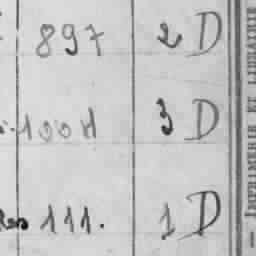 897 2 D
1004 3 D
111. 1 D
— IMPRIMERIE ET LIBRAIRIE